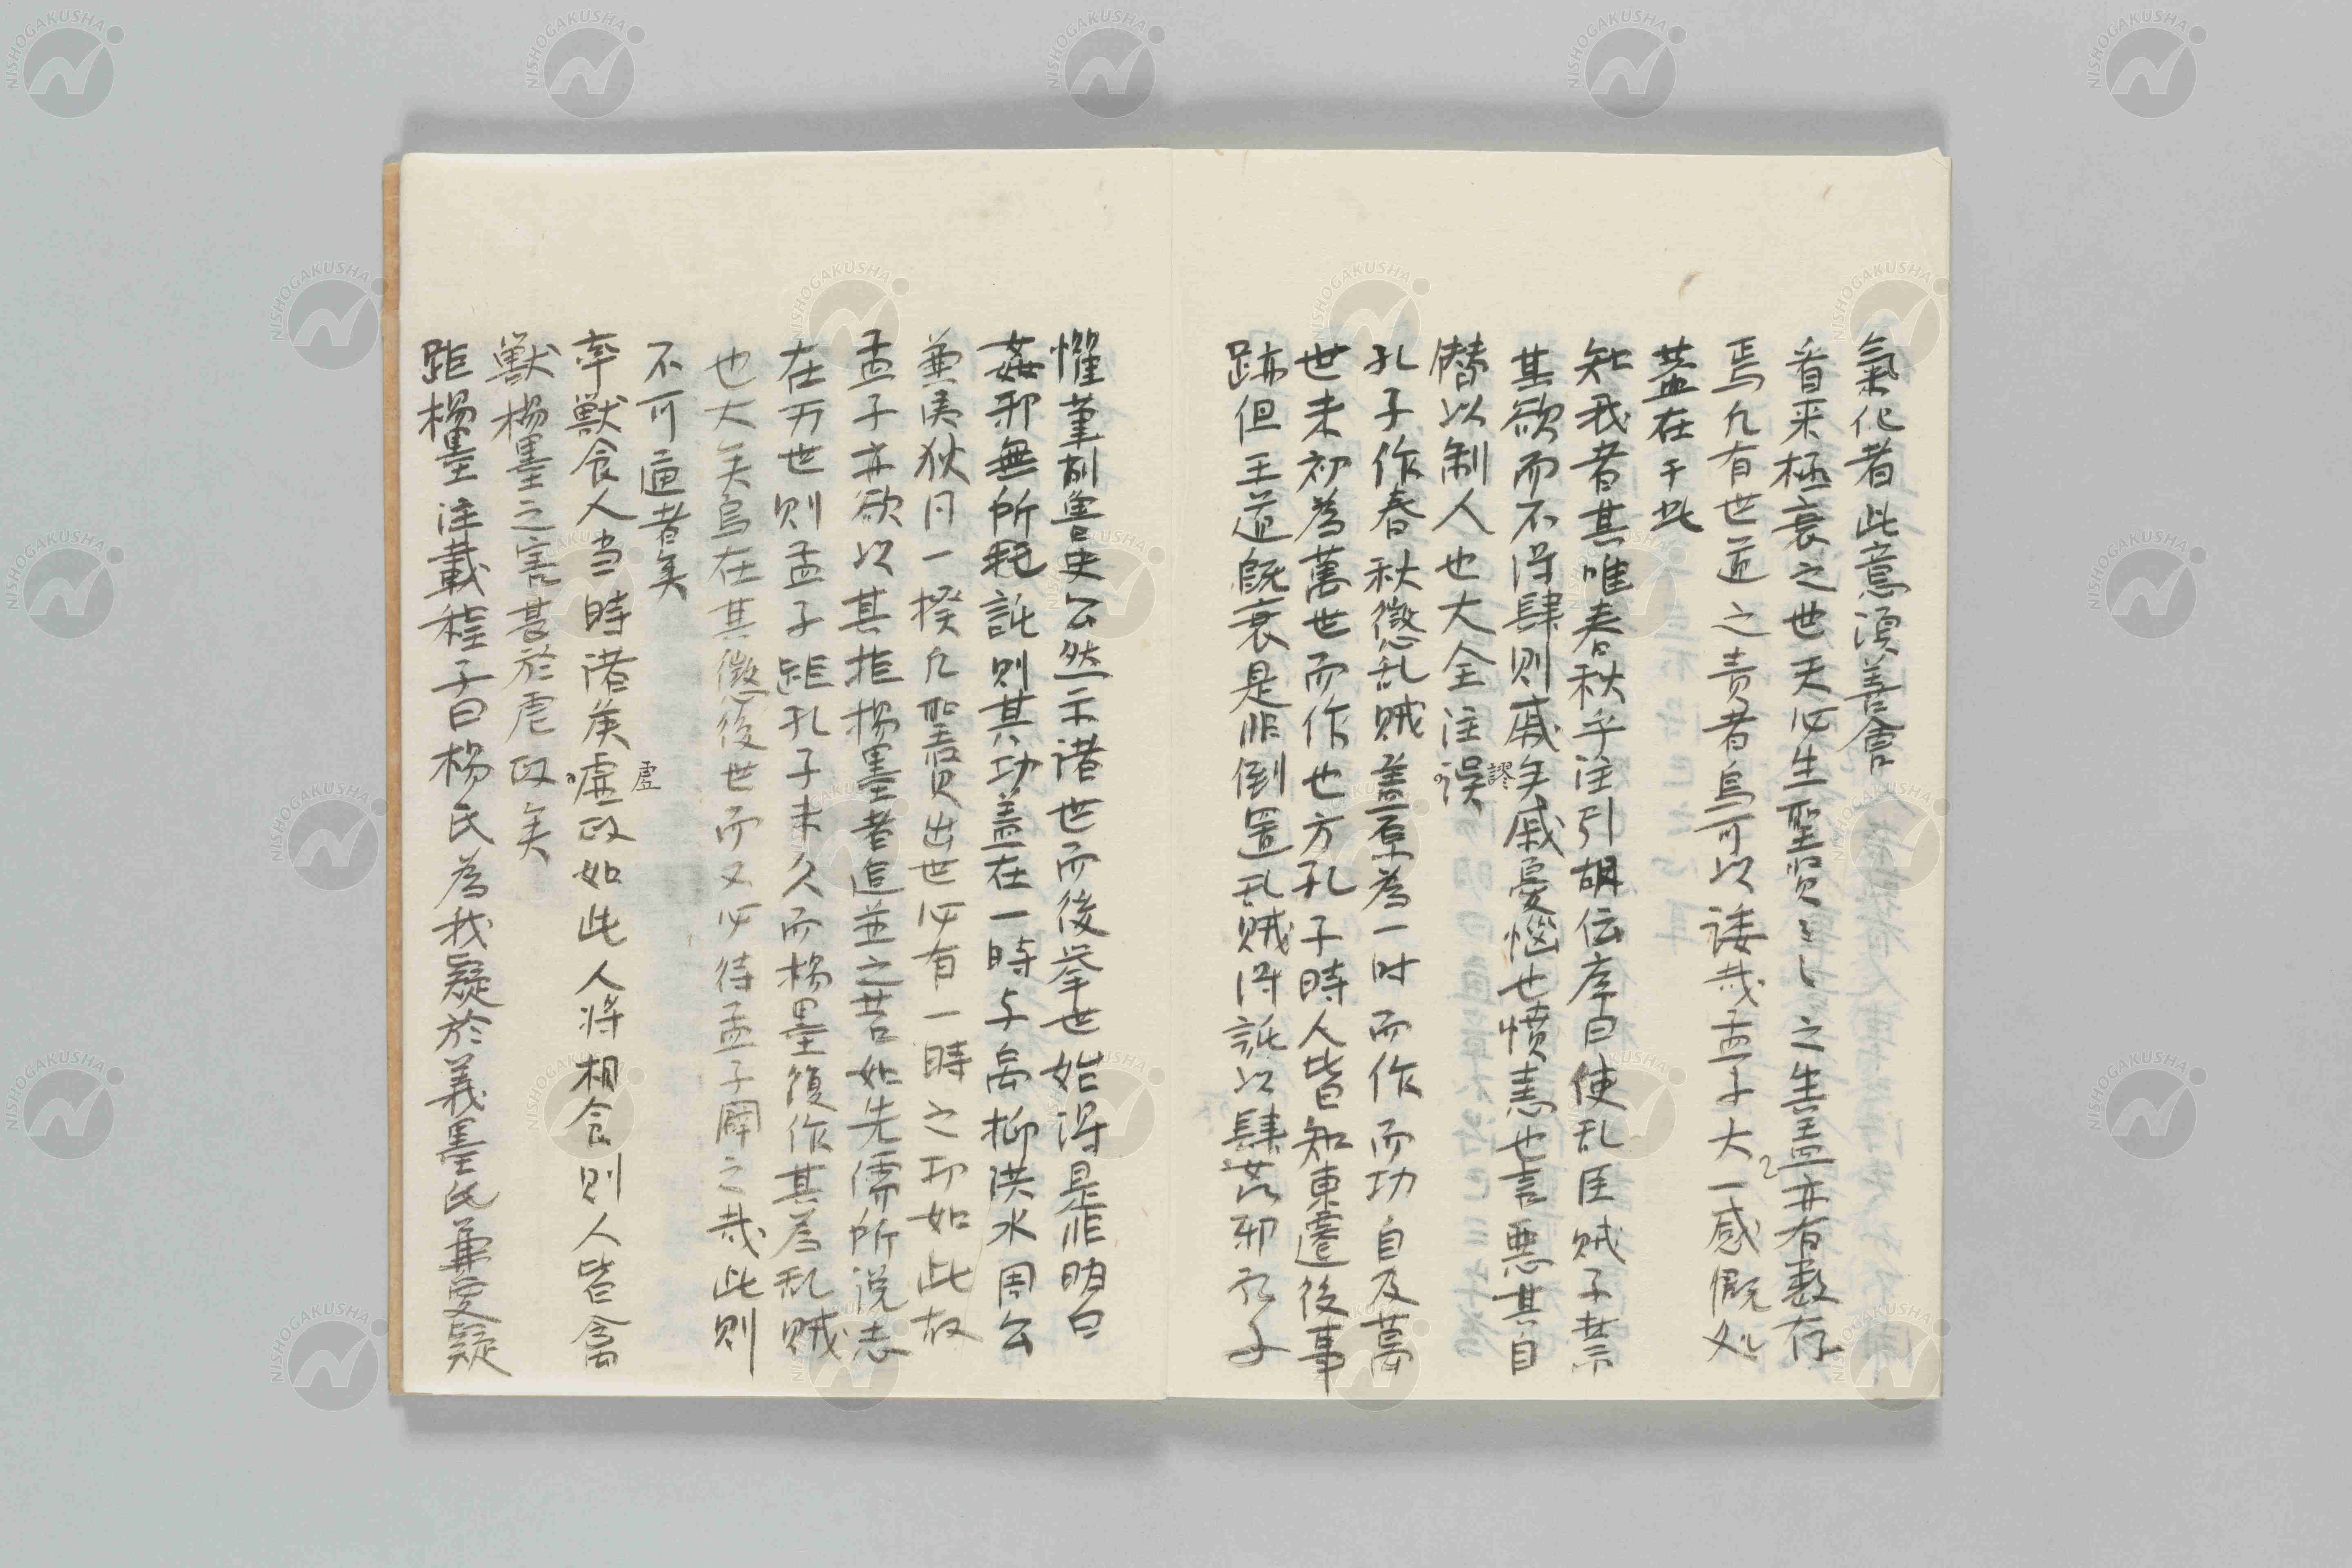 氣化者此意須善會
看来極衰之世天必生聖賢〻〻之生蓋亦有数存
焉凡有世道之責者烏可以諉哉孟子大一感慨処
蓋在于此
知我者其唯春秋乎注引胡伝序曰使乱臣賊子禁
其欲而不得肆則戚矣戚憂惱也憤恚也言悪其自
僣以制人也大全注誤
謬
孔子作春秋懲乱賊蓋原為一时而作而功自及万
世未初為萬世而作也方孔子時人皆知東遷後事
跡但王道既衰是非倒置乱賊得託以肆其邪孔子
惟筆削魯史公然示諸世而後挙世始得是非明白
姦邪無所託則其功蓋在一時与禹抑洪水周公
兼夷狄同一揆凡聖賢出世必有一時之功如此故
孟子亦欲以其拒楊墨者追並之若如先儒所説志
在万世則孟子距孔子未久而楊墨復作其為乱賊
也大矣烏在其懲後世而又必待孟子闢之哉此則
不可通者矣
率獣食人当時諸侯虐政如此人将相食則人皆禽
虐
獣楊墨之害甚於虐政矣
距楊墨注載程子曰楊氏為我疑於義墨氏兼愛疑
NISHOGAKUSHA